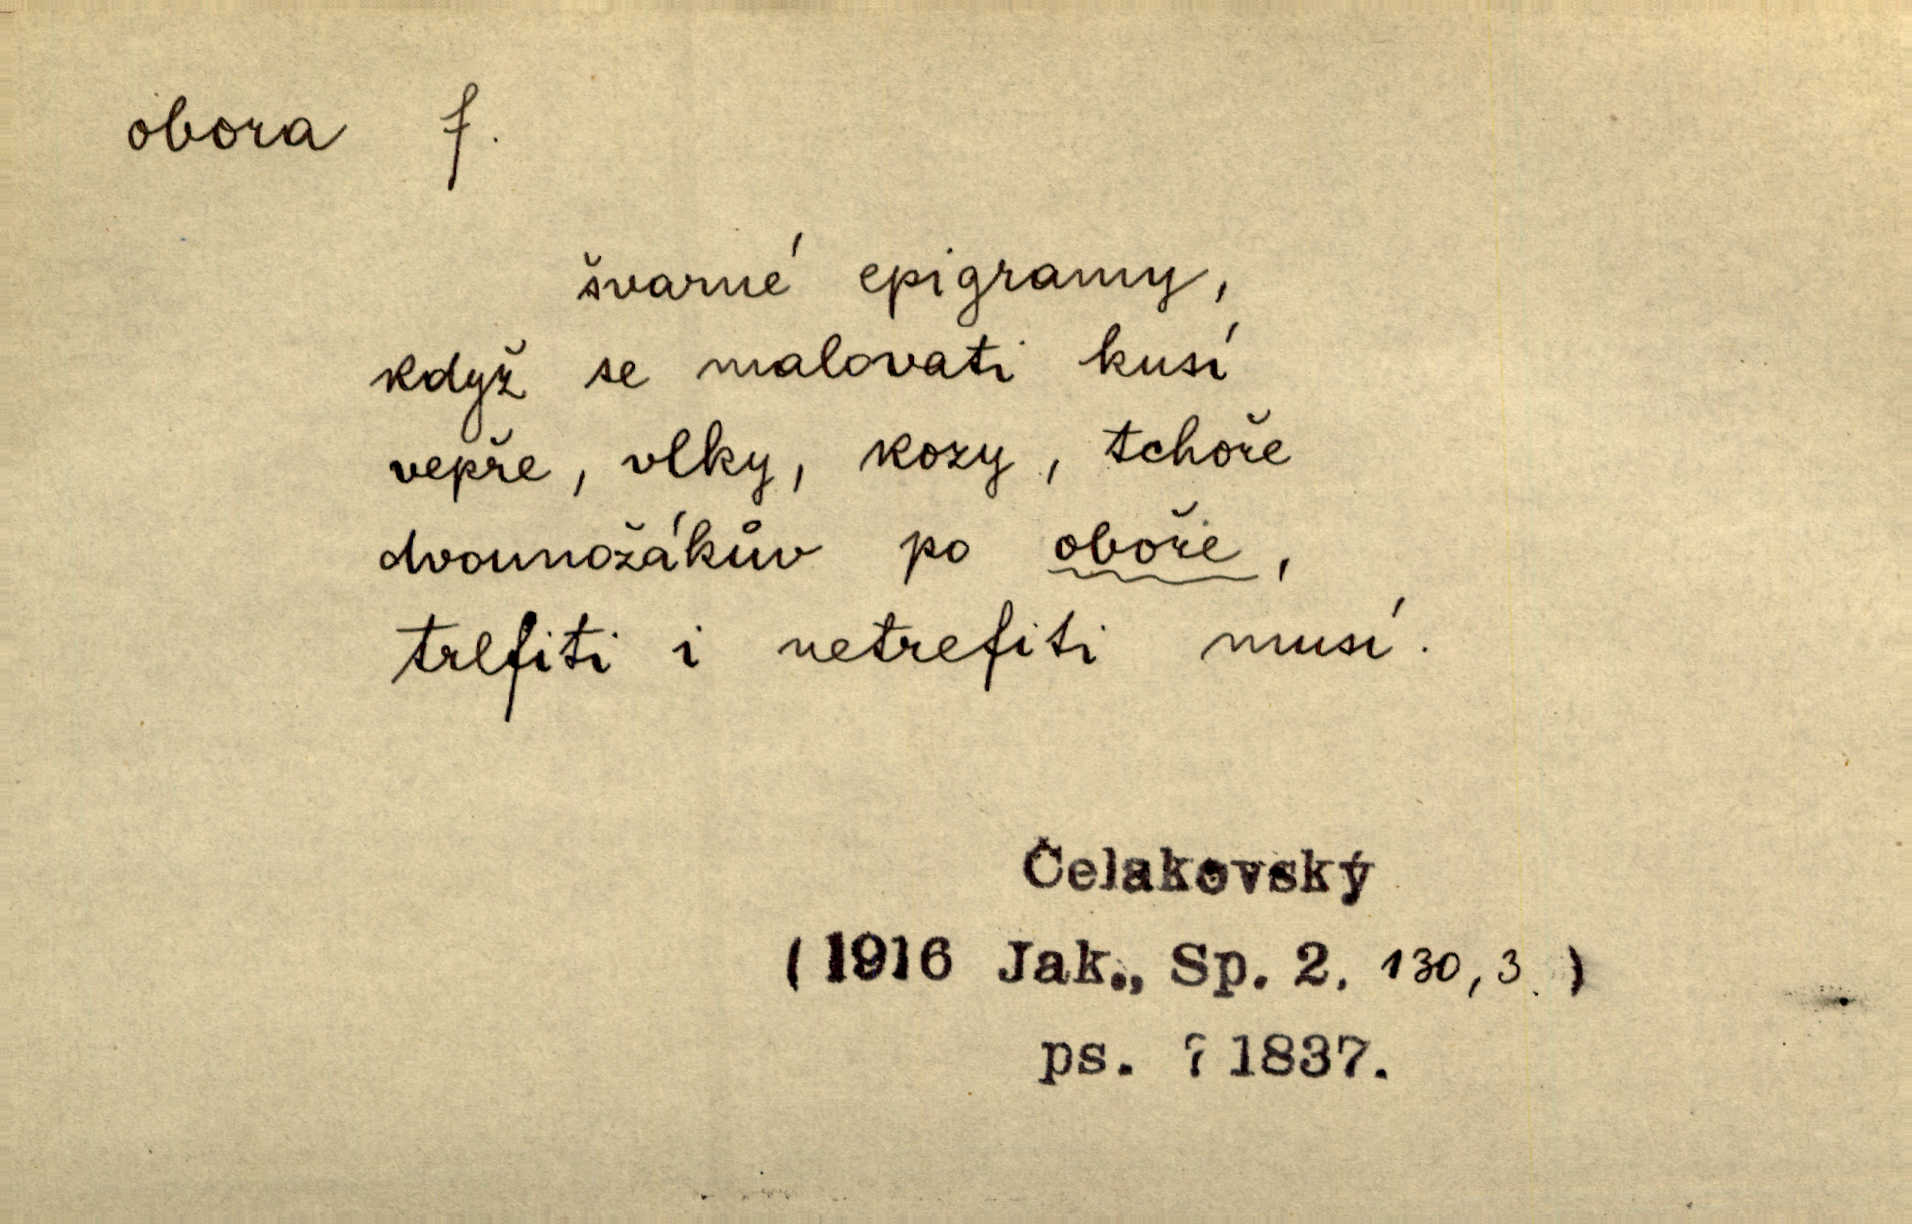 obora f.
švarné epigramy,
když se malovati kusí
vepře, vlky, kozy, tchoře
dvounožákův po oboře,
trefiti i netrefiti musí.
Čelakovský
(1916 Jak., Sp. 2, 130,3.)
ps. ? 1837.